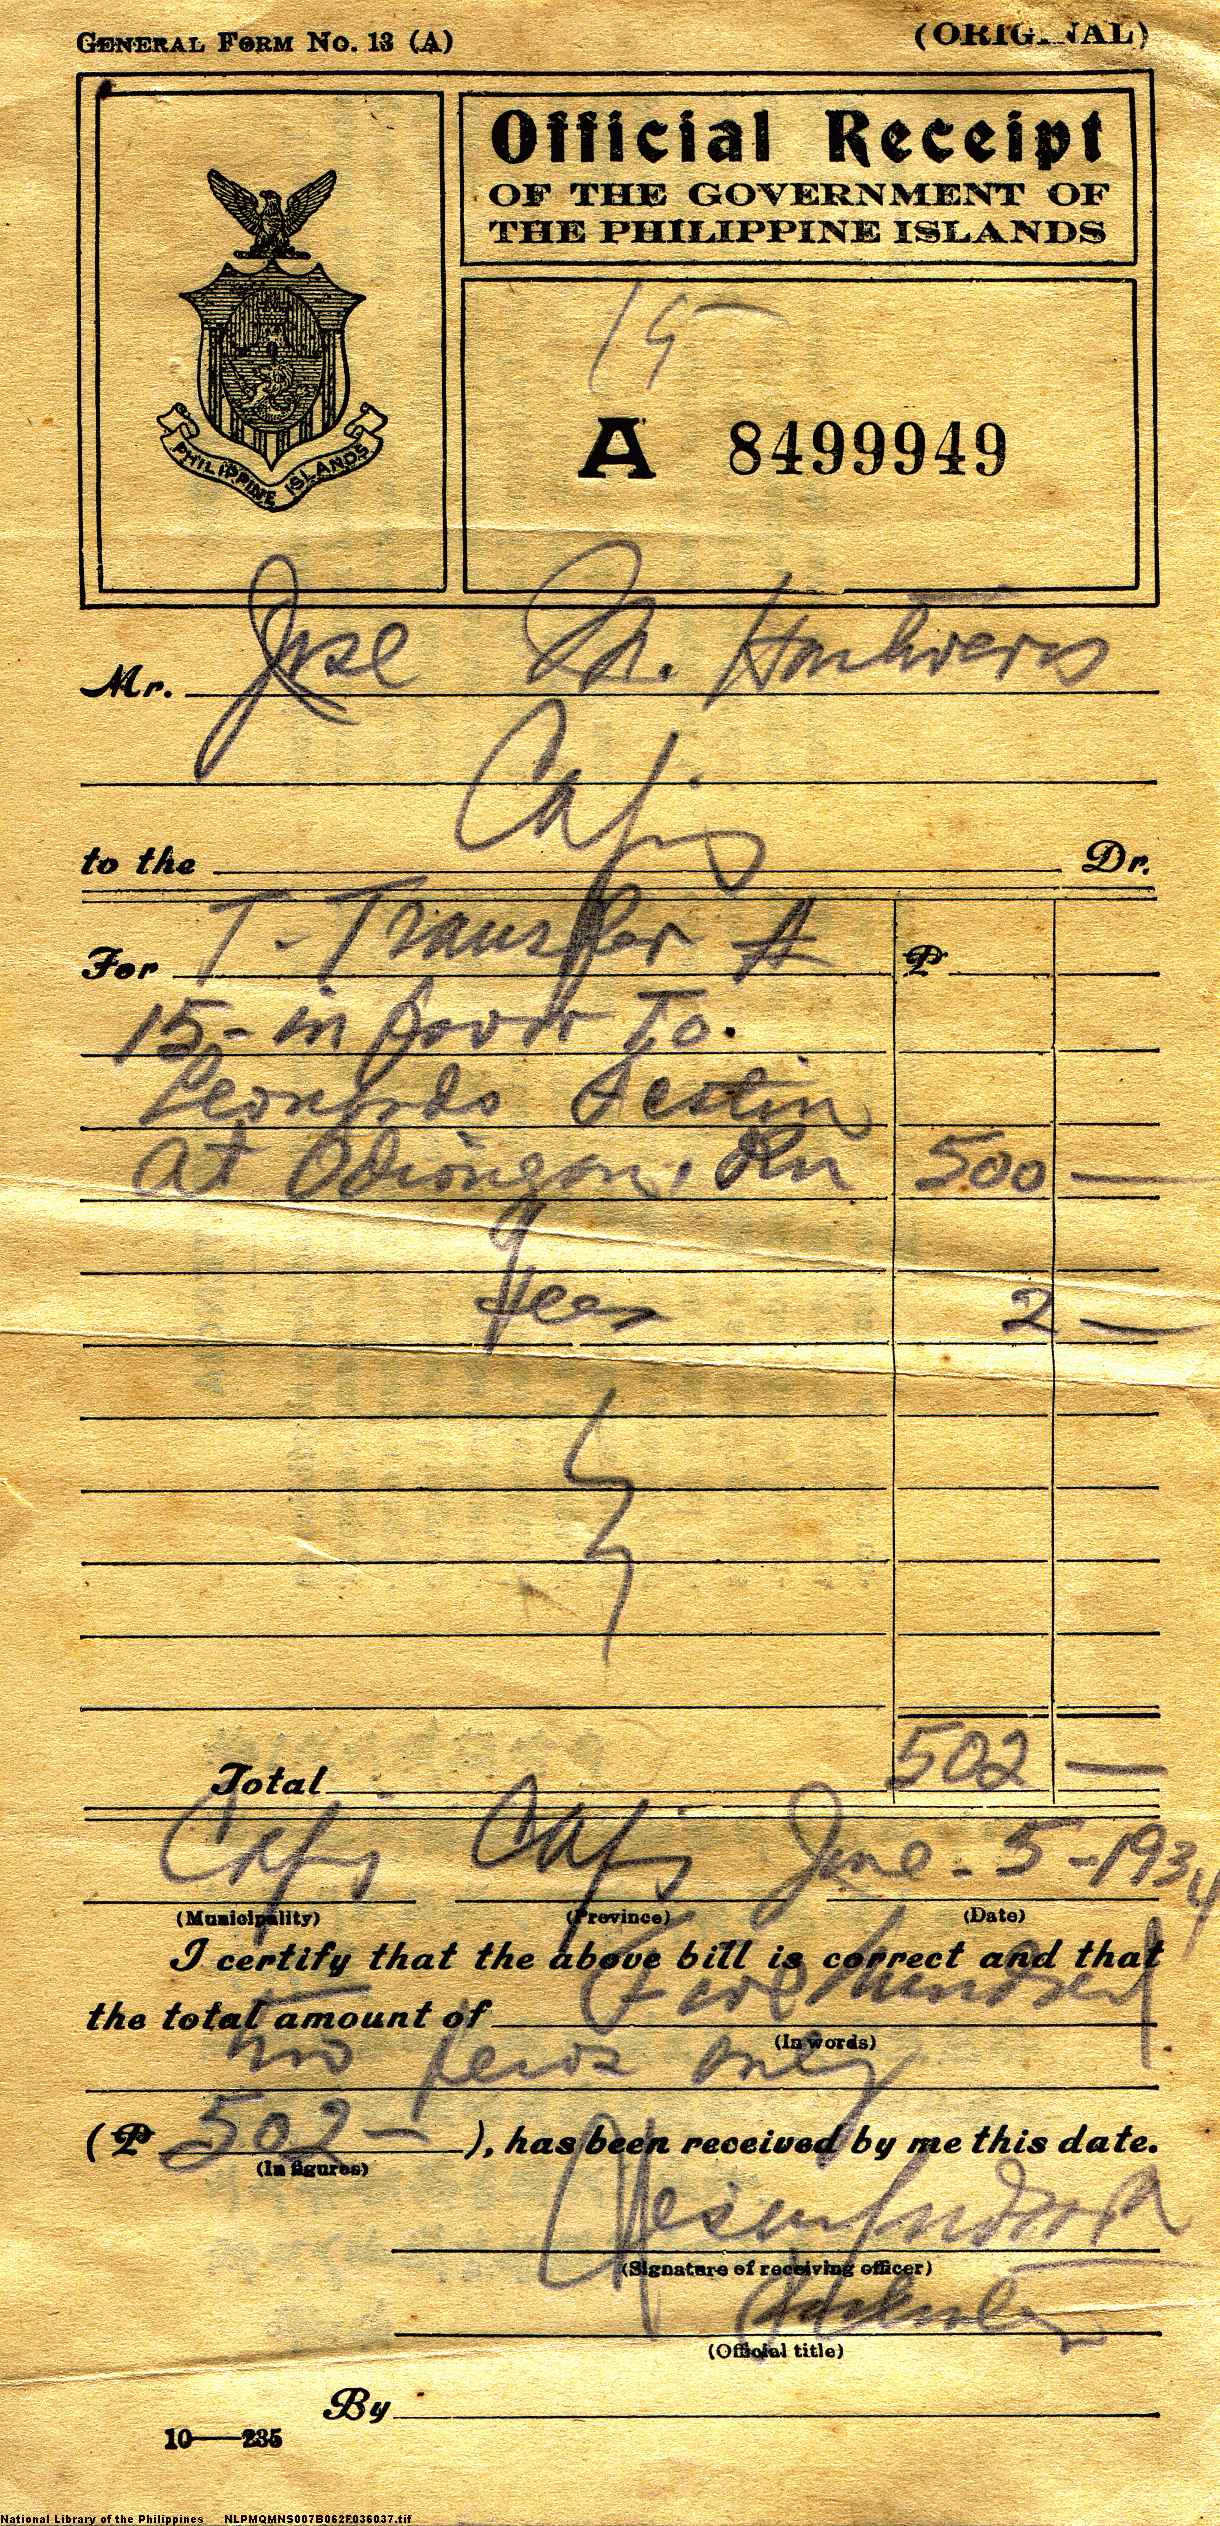 GENERAL FORM NO. 13 (A)
(ORIGINAL)
Official Receipt
OF THE GOVERNMENT OF
THE PHILIPPINE ISLANDS
PHILIPPINE ISLANDS
15-
A 8499949
Mr. Jose M.
Capiz
to the Dr.
For T-Transfer # ₱
15- in favor to.
Leonardo Festin
at Odiongan, 500 —
Fees 2 —
Total 502 —
Capiz Capiz June-5-1934
(Municipality) (Province) (Date)
I certify that the above bill is correct and that
the total amount of Five hundred
(In words)
two pesos only
(₱ 502 — ), has been received by me this date.
(In figures)
(Signature of receiving officer)
(Official title)
By
10—235
National Library of the Philippines NLPMQMNS007B062F036037.tif